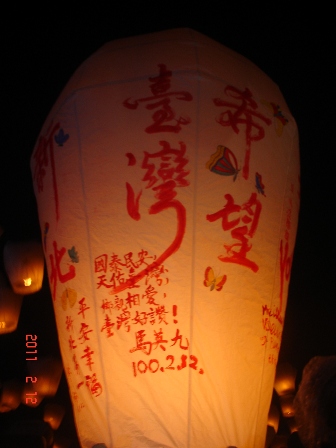 希望
臺灣
新北
國泰民安,
天佑臺灣,
相親相愛,
臺灣好讚!
馬英九
100.2.12.
平安幸福
2011 2 12